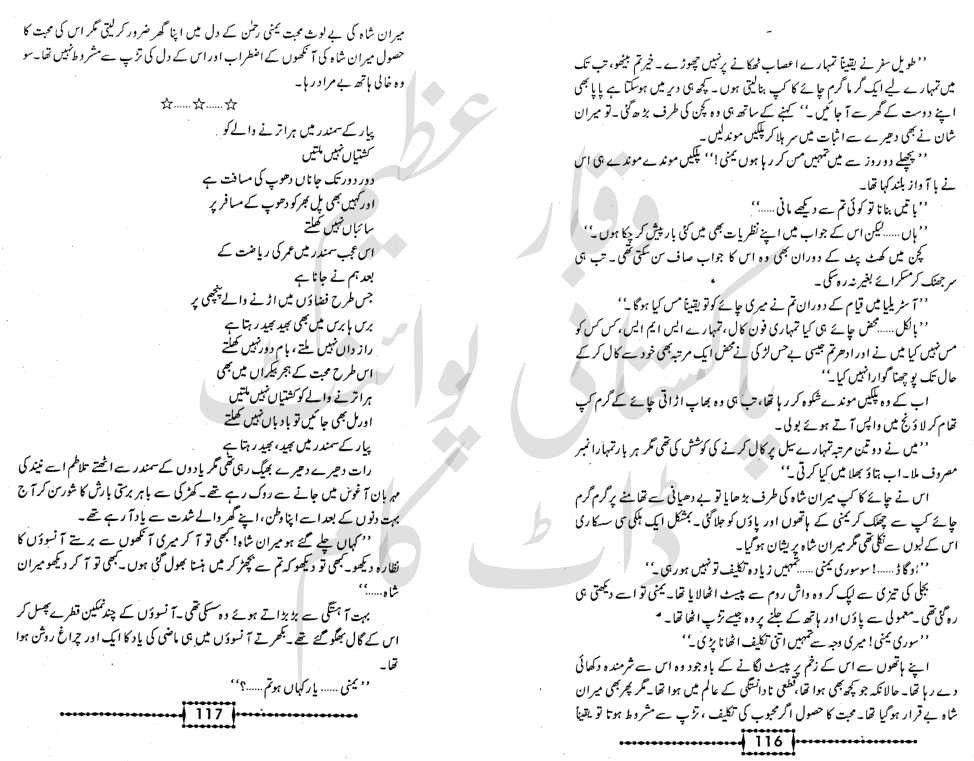 ’’طویل سفر نے یقیناً تمہارے اعصاب ٹھکانے پر نہیں چھوڑے۔ خیر تم بیٹھو، تب تک
میں تمہارے لیے ایک گرما گرم چائے کا کپ بنا لیتی ہوں۔ کچھ ہی دیر میں ہو سکتا ہے پاپا بھی
اپنے دوست کے گھر سے آ جائیں۔‘‘ کہنے کے ساتھ ہی وہ کچن کی طرف بڑھ گئی۔ تو میران
شان نے بھی دھیرے سے اثبات میں سر ہلا کر پلکیں موند لیں۔
’’پچھلے دو روز سے میں تمہیں مس کر رہا ہوں یمنیٰ!‘‘ پلکیں موندے موندے ہی اس
نے باآواز بلند کہا تھا۔
’’باتیں بنانا تو کوئی تم سے دیکھے مانی......‘‘
’’ہاں......لیکن اس کے جواب میں اپنے نظریات بھی میں کئی بار پیش کر چکا ہوں۔‘‘
کچن میں کھٹ پٹ کے دوران بھی وہ اس کا جواب صاف سن سکتی تھی۔ تب ہی
سر جھٹک کر مسکرائے بغیر نہ رہ سکی۔
’’آسٹریلیا میں قیام کے دوران تم نے میری چائے کو تو یقیناً مس کیا ہوگا۔‘‘
’’بالکل......محض چائے ہی کیا تمہاری فون کال، تمہارے ایس ایم ایس، کس کس کو
مس نہیں کیا میں نے اور ادھر تم جیسی بے حس لڑکی نے محض ایک مرتبہ بھی خود سے کال کر کے
حال تک پوچھنا گوارا نہیں کیا۔‘‘
اب کے وہ پلکیں موندے شکوہ کر رہا تھا، تب ہی وہ بھاپ اڑاتی چائے کے گرم کپ
تھام کر لاؤنج میں واپس آتے ہوئے بولی۔
’’میں نے دو تین مرتبہ تمہارے سیل پر کال کرنے کی کوشش کی تھی مگر ہر بار تمہارا نمبر
مصروف ملا۔ اب بتاؤ بھلا میں کیا کرتی۔‘‘
اس نے چائے کا کپ میران شاہ کی طرف بڑھایا تو بے دھیانی سے تھامنے پر گرم گرم
چائے کپ سے چھلک کر یمنیٰ کے ہاتھوں اور پاؤں کو جلا گئی۔ بمشکل ایک ہلکی سی سسکاری
اس کے لبوں سے نکلی تھی مگر میران شاہ پریشان ہو گیا۔
’’اوگاڈ......! سو سوری یمنیٰ......تمہیں زیادہ تکلیف تو نہیں ہو رہی۔‘‘
بجلی کی تیزی سے لپک کر وہ واش روم سے پیسٹ اٹھا لایا تھا۔ یمنیٰ تو اسے دیکھتی ہی
رہ گئی تھی۔ معمولی سے پاؤں اور ہاتھ کے جلنے پر وہ جیسے تڑپ اٹھا تھا۔
’’سوری یمنیٰ! میری وجہ سے تمہیں اتنی تکلیف اٹھانا پڑی۔‘‘
اپنے ہاتھوں سے اس کے زخم پر پیسٹ لگانے کے باوجود وہ اس سے شرمندہ دکھائی
دے رہا تھا۔ حالانکہ جو کچھ بھی ہوا تھا، قطعی نادانستگی کے عالم میں ہوا تھا۔ مگر پھر بھی میران
شاہ بے قرار ہو گیا تھا۔ محبت کا حصول اگر محبوب کی تکلیف، تڑپ سے مشروط ہوتا تو یقیناً
116
میران شاہ کی بے لوث محبت یمنیٰ رحمٰن کے دل میں اپنا گھر ضرور کر لیتی مگر اس کی محبت کا
حصول میران شاہ کی آنکھوں کے اضطراب اور اس کے دل کی تڑپ سے مشروط نہیں تھا۔ سو
وہ خالی ہاتھ بے مراد رہا۔
☆......☆......☆
پیار کے سمندر میں ہر اترنے والے کو
کشتیاں نہیں ملتیں
دور دور تک جاناں دھوپ کی مسافت ہے
اور کہیں بھی پل بھر کو دھوپ کے مسافر پر
سائباں نہیں کھلتے
اس عجب سمندر میں عمر کی ریاضت کے
بعد ہم نے جانا ہے
جس طرح فضاؤں میں اڑنے والے پنچھی پر
برس ہا برس میں بھی بھید بھید رہتا ہے
راز داں نہیں ملتے، بام و در نہیں کھلتے
اس طرح محبت کے بحر بیکراں میں بھی
ہر اترنے والے کو کشتیاں نہیں ملتیں
اور مل بھی جائیں تو بادباں نہیں کھلتے
پیار کے سمندر میں بھید، بھید رہتا ہے
رات دھیرے دھیرے بھیگ رہی تھی مگر یادوں کے سمندر سے اٹھتے تلاطم اسے نیند کی
مہربان آغوش میں جانے سے روک رہے تھے۔ کھڑکی سے باہر برستی بارش کا شور سن کر آج
بہت دنوں کے بعد اسے اپنا وطن، اپنے گھر والے شدت سے یاد آ رہے تھے۔
’’کہاں چلے گئے ہو میران شاہ! کبھی تو آ کر میری آنکھوں سے برستے آنسوؤں کا
نظارہ دیکھو۔ کبھی تو دیکھو کہ تم سے بچھڑ کر میں ہنسنا بھول گئی ہوں۔ کبھی تو آ کر دیکھو میران
شاہ......‘‘
بہت آہستگی سے بڑبڑاتے ہوئے وہ سسکی تھی۔ آنسوؤں کے چند نمکین قطرے پھسل کر
اس کے گال بھگو گئے تھے۔ بکھرتے آنسوؤں میں ہی ماضی کی یاد کا ایک اور چراغ روشن ہوا
تھا۔
’’یمنیٰ......یار کہاں ہو تم......؟‘‘
117
وقار عظیم
پاکستانی پوائنٹ
ڈاٹ کام